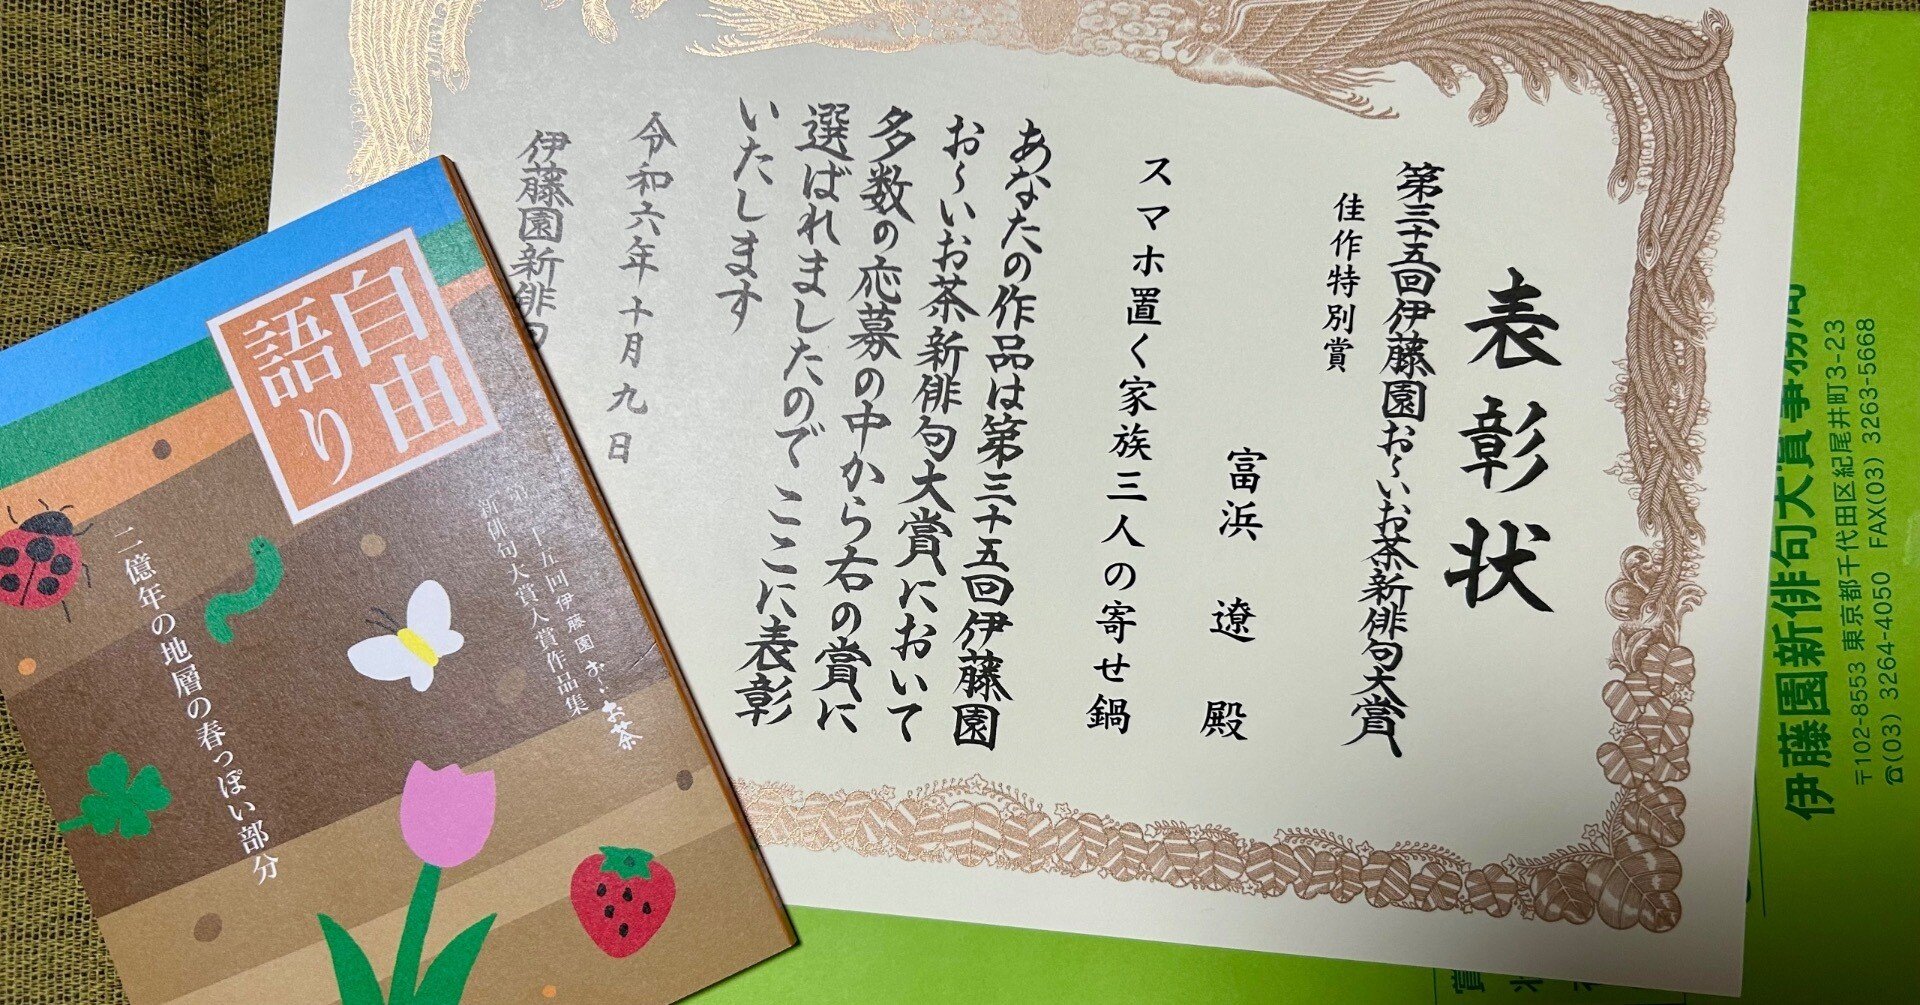 表彰状
第三十五回伊藤園お〜いお茶新俳句大賞
佳作特別賞
富浜 遼 殿
スマホ置く家族三人の寄せ鍋
あなたの作品は第三十五回伊藤園
お〜いお茶新俳句大賞において
多数の応募の中から右の賞に
選ばれましたので ここに表彰
いたします
令和六年十月九日
伊藤園新俳句
自由
語り
第三十五回伊藤園お〜いお茶
新俳句大賞入賞作品集
二億年の地層の春っぽい部分
伊藤園新俳句大賞事務局
〒102-8553 東京都千代田区紀尾井町3-23
☎(03) 3264-4050 FAX(03) 3263-5668
賞
状